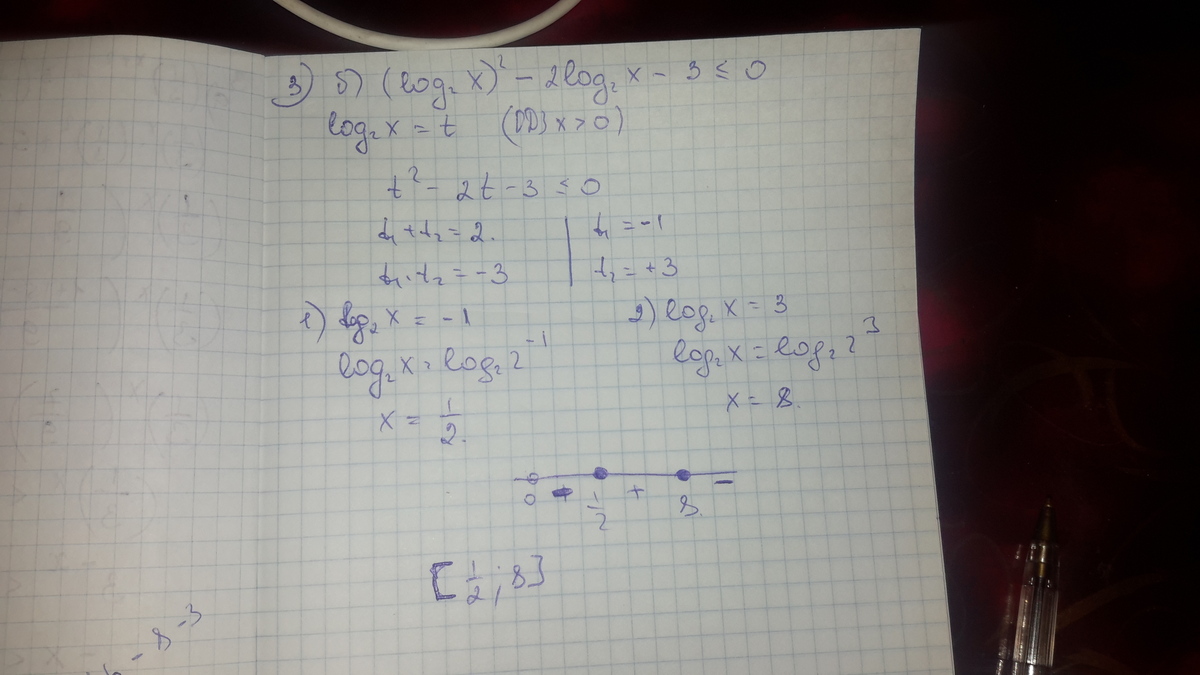 3) б) (log₂ x)² − 2log₂ x − 3 ≤ 0
log₂ x = t (ОДЗ x > 0)
t² − 2t − 3 ≤ 0
t₁ + t₂ = 2. | t₁ = −1
t₁ · t₂ = −3 | t₂ = +3
1) log₂ x = −1 2) log₂ x = 3
log₂ x = log₂ 2⁻¹ log₂ x = log₂ 2³
x = 1/2. x = 8.
0 1/2 + 8. −
[1/2; 8]
− 8⁻³